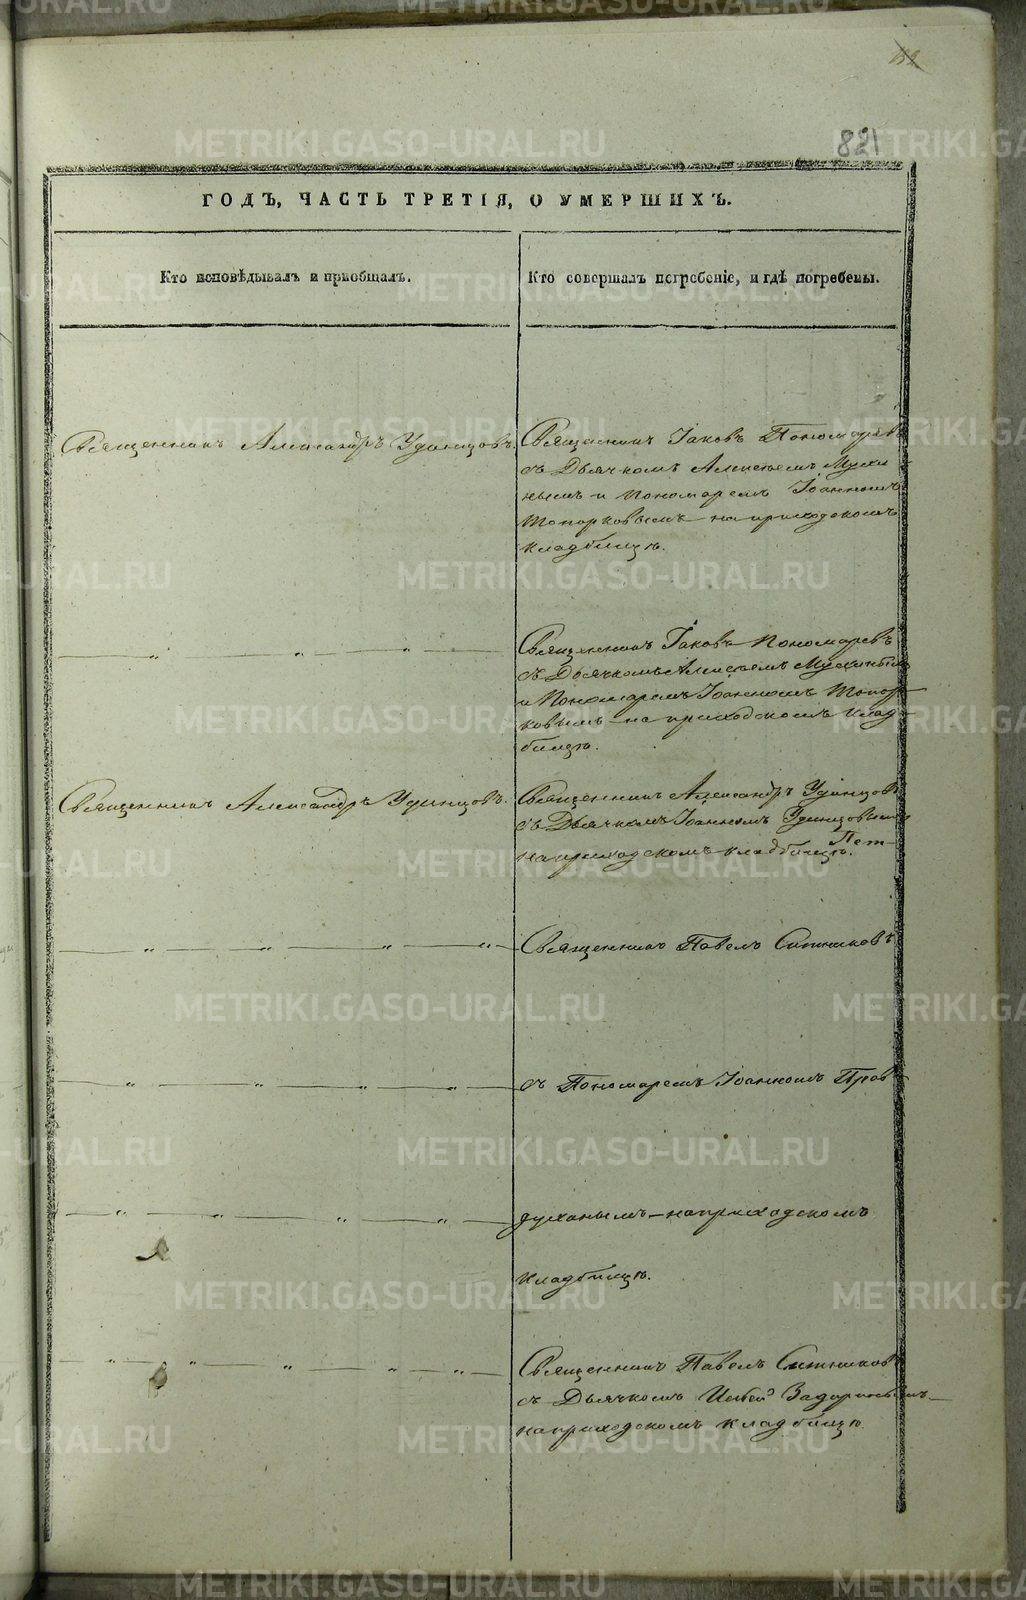 821
ГОДЪ, ЧАСТЬ ТРЕТІЯ, О УМЕРШИХЪ.
Кто исповѣдывалъ и пріобщалъ.
Кто совершалъ погребеніе, и гдѣ погребены.
Священникъ Александръ Удинцовъ.
Священникъ Іаковъ Пономаревъ
съ Дьячкомъ Алексѣемъ Мухи-
нымъ и Пономаремъ Іоанномъ
Топорковымъ на приходскомъ
кладбищѣ.
— „ „ „ —
Священникъ Іаковъ Пономаревъ
съ Дьячкомъ Алексѣемъ Мухинымъ
и Пономаремъ Іоанномъ Топор-
ковымъ на приходскомъ клад-
бищѣ.
Священникъ Александръ Удинцовъ.
Священникъ Александръ Удинцовъ
съ Дьячкомъ Іоанномъ Удинцовымъ
на приходскомъ кладбищѣ.
— „ — „ — „ — „ —
Священникъ Павелъ Ситниковъ
— „ — „ — „ — „ —
съ Пономаремъ Іоанномъ
— „ — „ — „ — „ —
на приходскомъ
кладбищѣ.
— „ — „ — „ — „ — „ —
Священникъ Павелъ Ситниковъ
съ Дьячкомъ
на приходскомъ кладбищѣ
METRIKI.GASO-URAL.RU